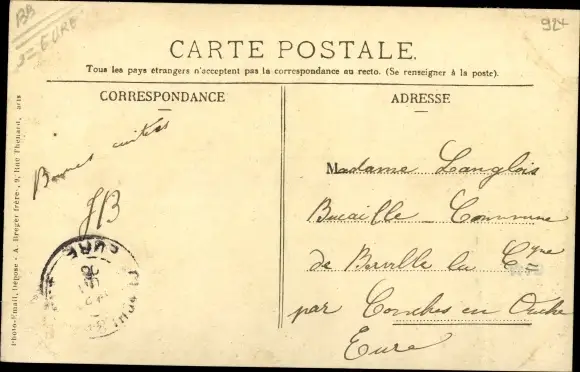 BB
EURE
924
CARTE POSTALE.
Tous les pays étrangers n'acceptent pas la correspondance au recto. (Se renseigner à la poste).
CORRESPONDANCE
ADRESSE
Bonnes
JB
Madame Langlois
Bucaille _ Commune
de Berville la Cgne
par Conches en Ouche
Eure
EURE
Photo-Email, déposé - A. Breger frères, 9, Rue Thénard,